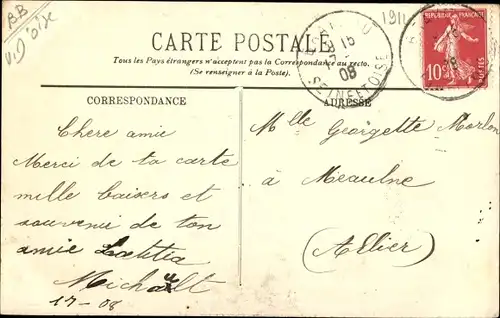 BB
V.D'oise
1911
CARTE POSTALE
Tous les Pays étrangers n'acceptent pas la Correspondance au recto.
(Se renseigner à la Poste.)
15
08
SEINE ET OISE
REPUBLIQUE FRANÇAISE
10c
POSTES
CORRESPONDANCE
ADRESSE
Chere amie
Merci de ta carte
mille baisers et
souvenir de ton
amie Lætitia
Michault
17-08
Mlle Georgette Morlon
à Meaulne
(Allier)